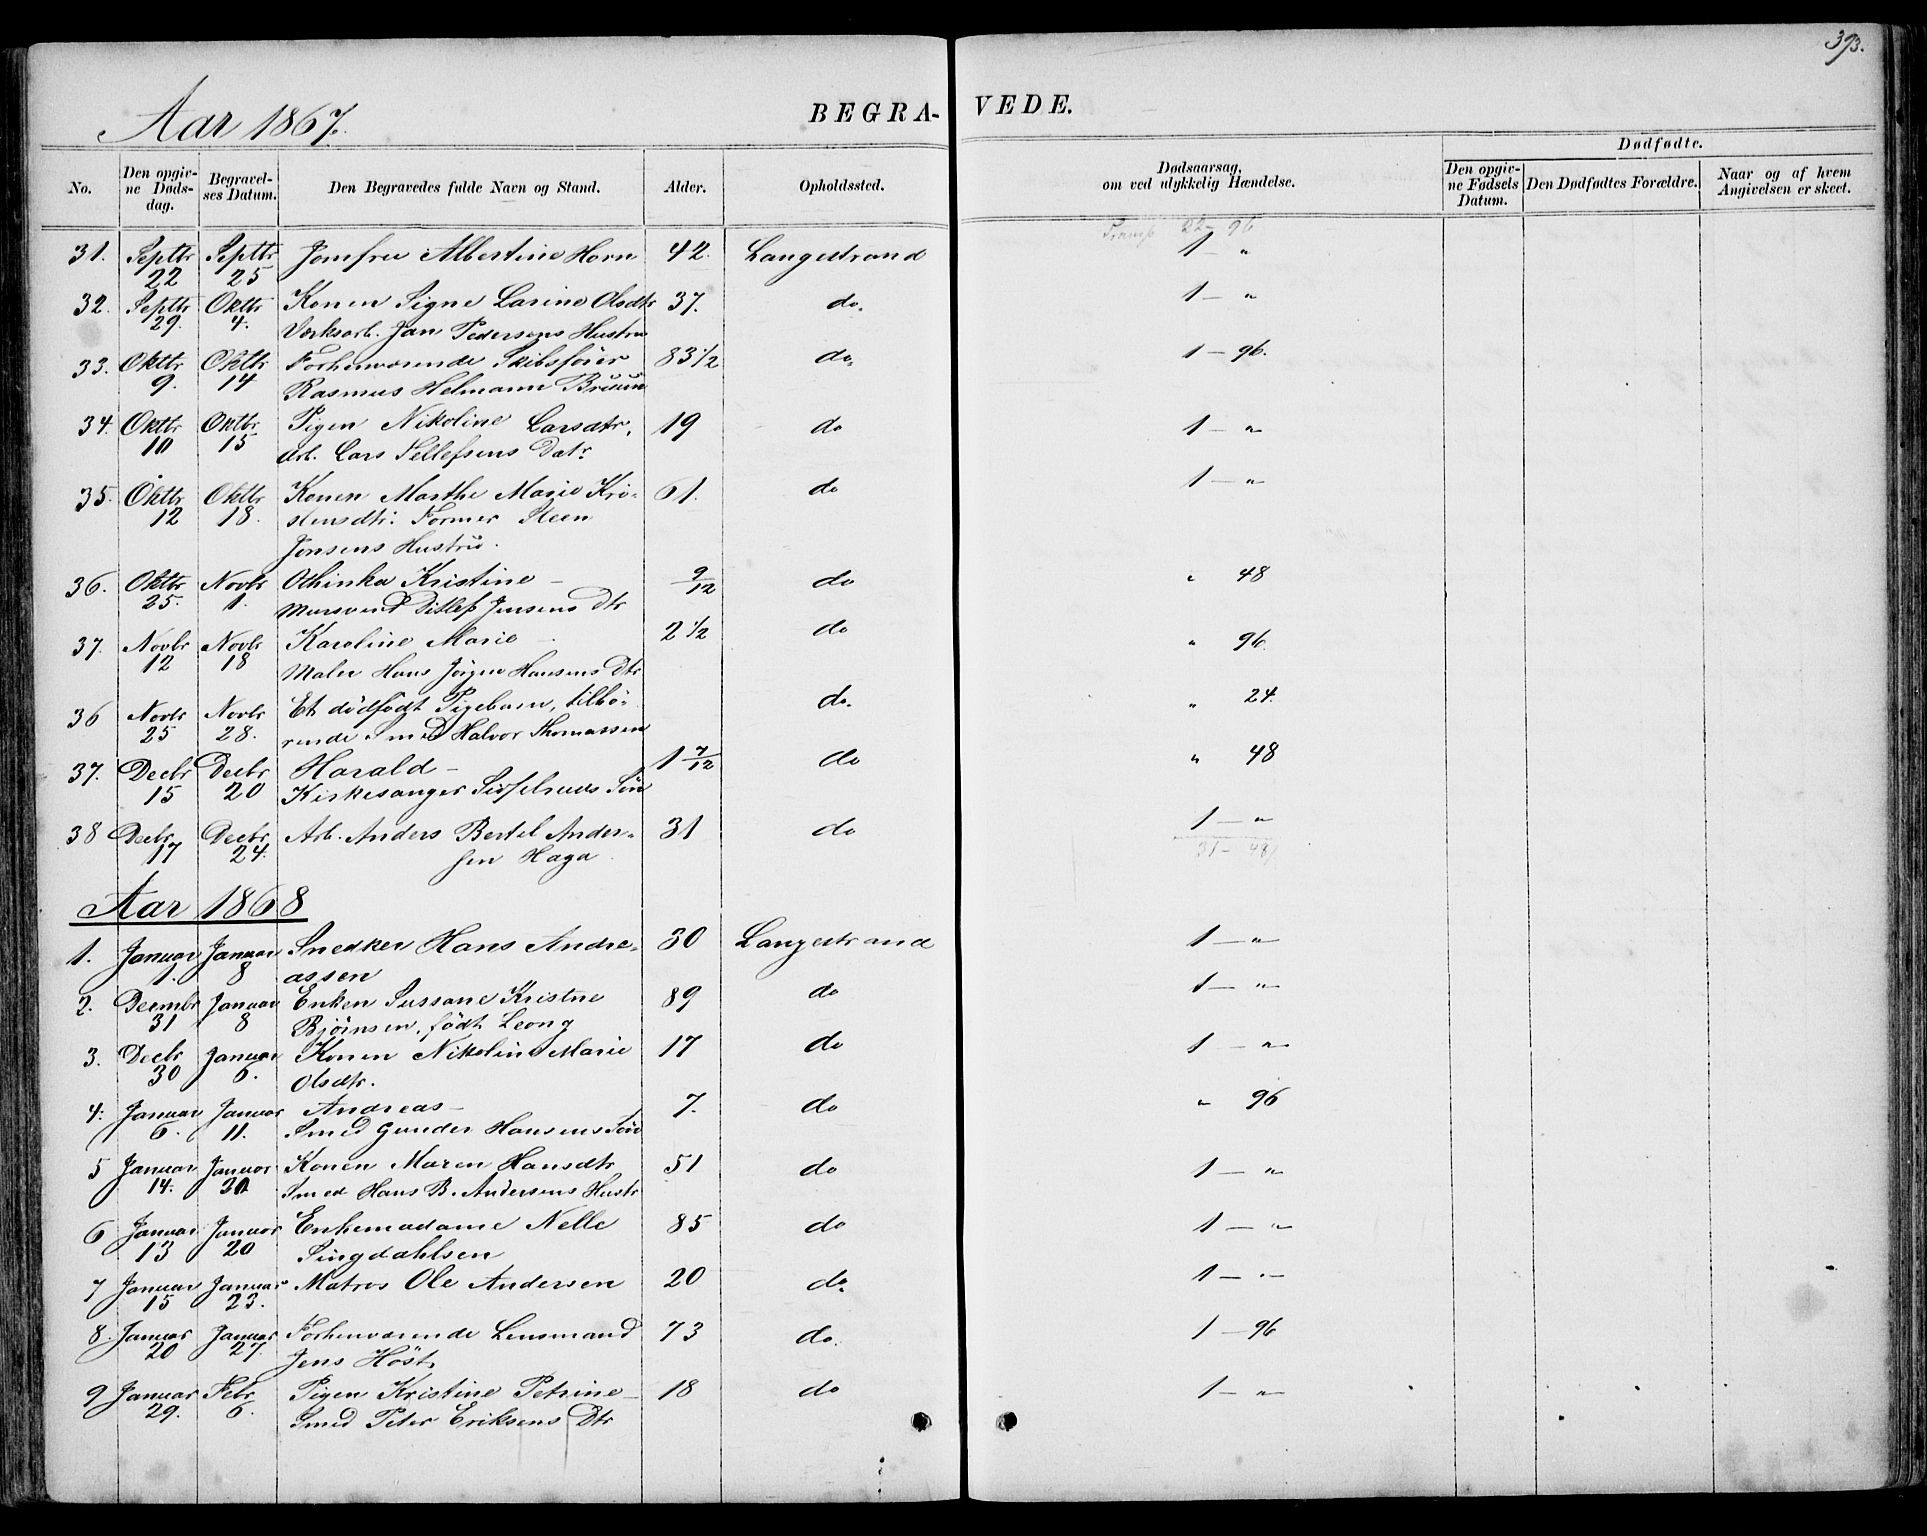 393.
Aar 1867.
BEGRA-
VEDE.
No.
Den opgiv-
ne Døds-
dag.
Begravel-
ses Datum.
Den Begravedes fulde Navn og Stand.
Alder.
Opholdssted.
Dødsaarsag,
om ved ulykkelig Hændelse.
Dødfødte.
Den opgiv-
ne Fødsels
Datum.
Den Dødfødtes Forældre.
Naar og af hvem
Angivelsen er skeet.
22-96
31. Septbr Septbr Jomfru Albertine Horn 42. Langestrand 1 — "
22 25
32. Septbr Oktbr Konen Signe Larine Olsdtr 37. do. 1 — "
29. 4. Værksarb. Jan Pedersens Hustru
33. Oktbr Oktbr Forhenværende Skibsfører 83 1/2 do. 1 — 96.
9. 14 Rasmus Helmann Bruun
34. Oktbr Oktbr Pigen Nikoline Larsdtr, 19 do 1 — "
10 15 Arb. Lars Sellefsens Datr
35. Oktbr Oktbr Konen Marthe Marie Kri- 61. do 1 — "
12 18. stensdtr. Former Steen
Jensens Hustru.
36. Oktbr Novbr Othinka Kristine — 9/12 do " 48
25. 1. Mursvend Ditlef Jensens Dtr
37. Novbr Novbr Karoline Marie — 2 1/2 do " 96.
12 18 Maler Hans Jørgen Hansens Dtr
36 Novbr Novbr Et dödfödt Pigebarn, tilhö- do. " 24.
25 28. rende Smed Halvor Thomassen
37. Decbr Decbr Harald — 1 7/12 do " 48
15 20 Kirkesanger Sön
38 Decbr Decbr Arb. Anders Bertel Ander- 31 do 1 — "
17 24. sen Haga
31 - 48
Aar 1868
1. Januar Januar Snedker Hans Andre- 30 Langestrand 1 — "
1. 8 assen
2. Decmbr Januar Enken Sussane Kristne 89 do 1 — "
31 8 Bjørnsen, födt
3. Decbr Januar Konen Nikoline Marie 17 do 1 — "
30 6. Olsdtr.
4. Januar Januar Andreas — 7. do " 96
6. 11. Smed Gunder Hansens Sön
5 Januar Januar Konen Maren Hansdtr 51 do 1 — "
14. 20 Smed Hans B. Andersens Hustr
6 Januar Januar Enkemadame Nelle 85 do 1 — "
13 20 Singdahlsen
7 Januar Januar Matros Ole Andersen 20 do. 1 — " —
15 23.
8. Januar Januar Forhenværende Lensmand 73 do. 1 — 96
20 27. Jens Höst,
9 Januar Febr Pigen Kristine Petrine — 18 do 1 — "
29. 6. Smed Peter Eriksens Dtr